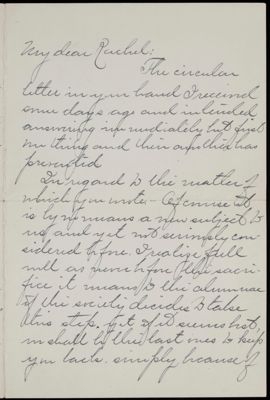 My dear Rachel:
The circular
letter in your hand I received
some days ago and intended
answering immediately but first
one thing and then another has
prevented.
In regard to the matter of
which you write - Of course it
is by no means a new subject to
us and yet not seriously con-
sidered before. I realize full
well as never before the sacri-
fice it means to the alumnae
if the society decides to take
this step, yet if it seems best,
we shall be the last ones to keep
you back simply because of